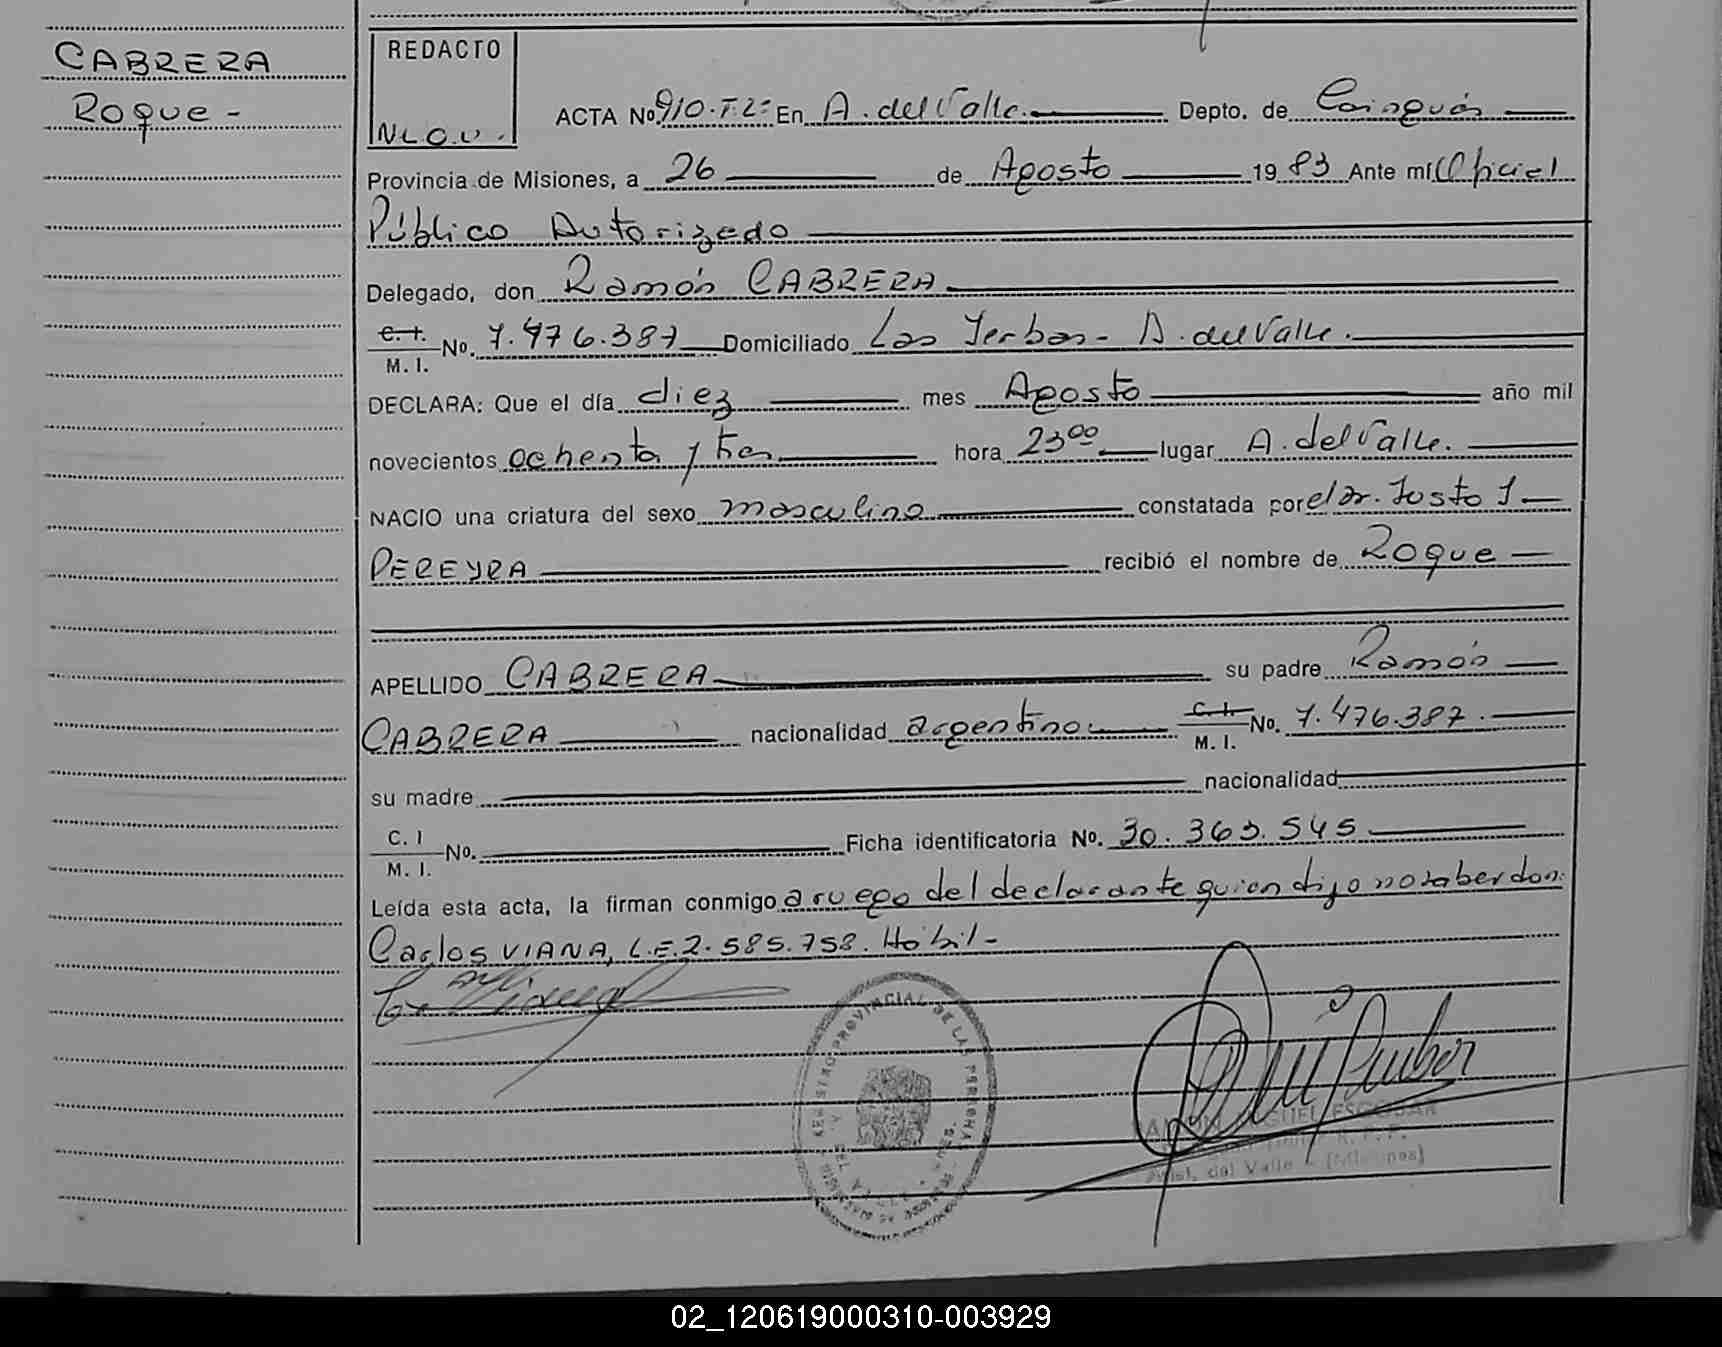 CABRERA
Roque -
REDACTO
N.L.O.V.
ACTA No. 910.T.2º En A. del Valle. Depto. de Cainguás
Provincia de Misiones, a 26 de Agosto 1983 Ante mí Oficial
Público Autorizado
Delegado, don Ramón CABRERA
C. I. No. 7.476.387 Domiciliado Las Yerbas - A. del Valle.
M. I.
DECLARA: Que el día diez mes Agosto año mil
novecientos ochenta y tres hora 23⁰⁰ lugar A. del Valle.
NACIO una criatura del sexo masculino constatada por el Dr. Justo J
PEREYRA recibió el nombre de Roque
APELLIDO CABRERA su padre Ramón
CABRERA nacionalidad argentino C. I. No. 7.476.387.
M. I.
su madre nacionalidad
C. I No.
M. I.
Ficha identificatoria No. 30.363.545
Leída esta acta, la firman conmigo a ruego del declarante quien dijo no saber don:
Carlos VIANA, L.E. 2.585.758. Hábil -
REGISTRO PROVINCIAL DE LAS PERSONAS
DEL VALLE
MIGUEL ESCOBAR
Arist. del Valle - (Misiones)
02_120619000310-003929